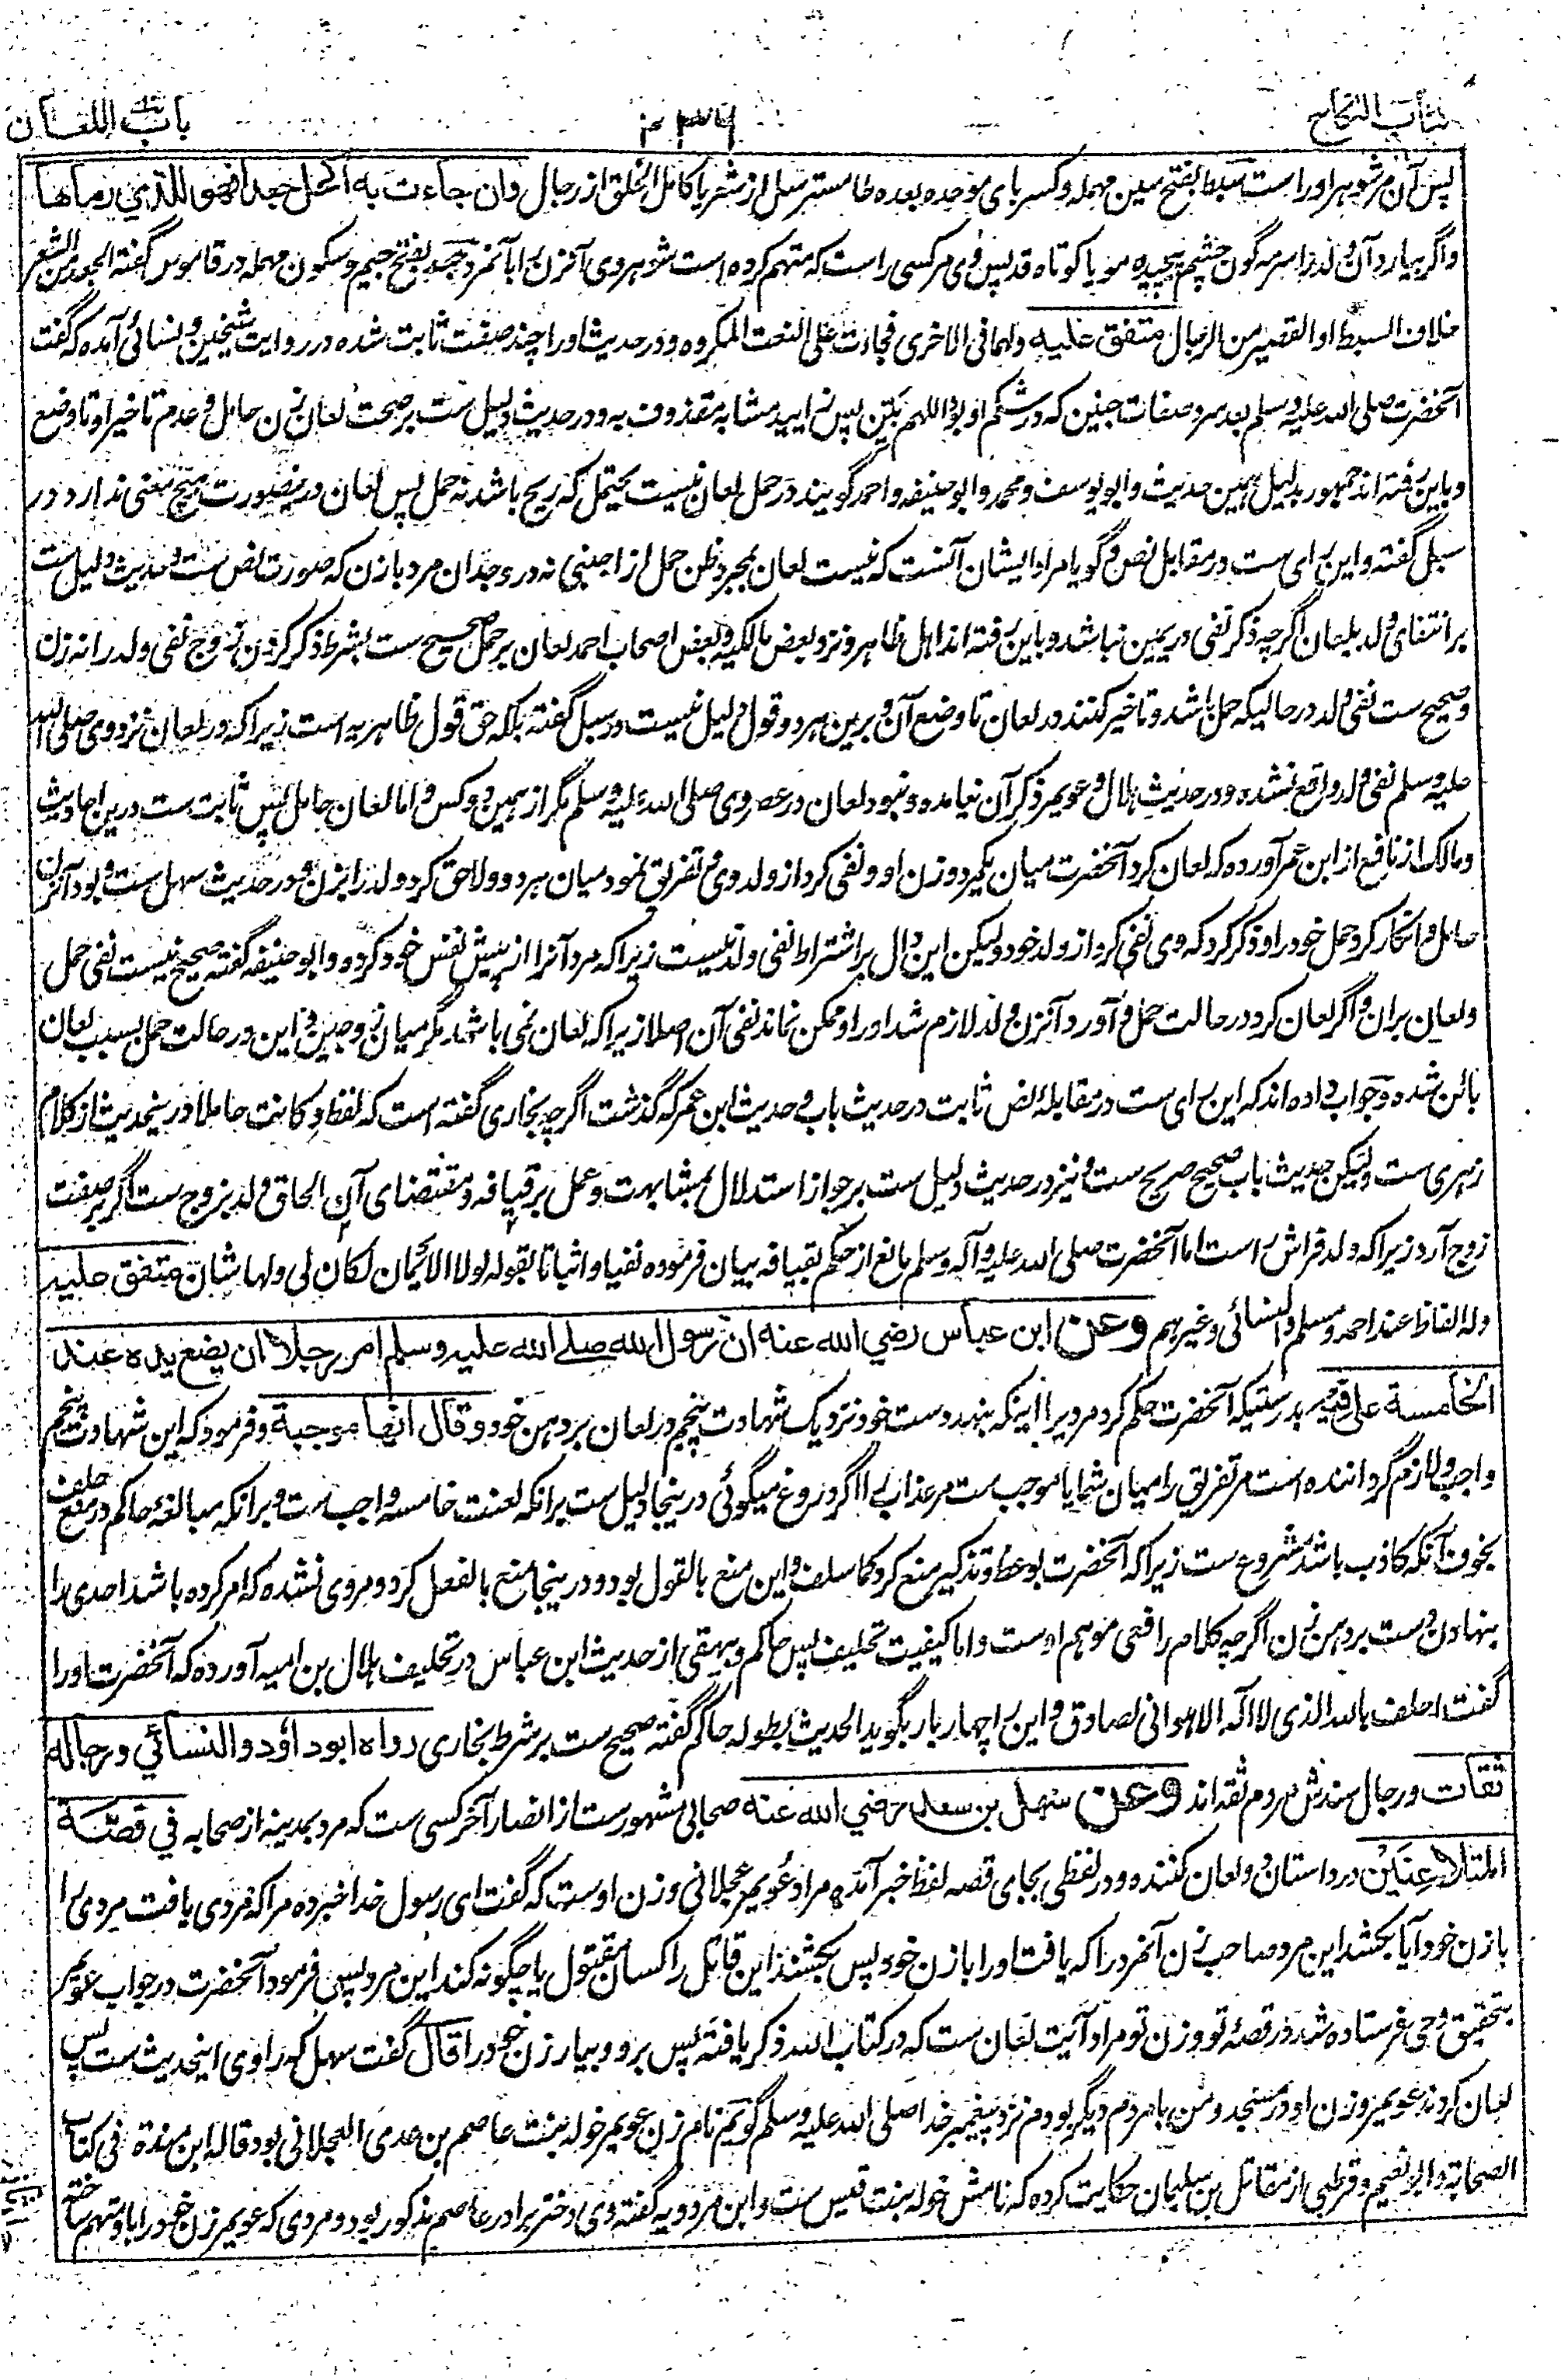 کتاب النکاح
۲۳۶
باب اللعان
پس آن مر شوهر او راست سبط بفتح سین مهمله و کسر بای موحده بعده طا مسترسل از شعر یا کامل الخلق از رجال وان جاءت به اکحل جعدا فهو للذي رماها
و اگر بیارد آن ولد را سرمه گون چشم پیچیده مو یا کوتاه قد پس وی مر کسی راست که متهم کرده است شوهر وی آنزن را با آنمرد جعد بفتح جیم و سکون مهمله در قاموس گفته الجعد من الشعر
خلاف السبط او القصیر من الرجال متفق علیه ولهما فی الاخری فجاءت علی النعت المکروه و در حدیث او را چند صفت ثابت شده در روایت شیخین و نسائی آمده که گفت
آنحضرت صلی الله علیه وسلم بعد سرد صفات جنین که در شکم او بود اللهم بین پس زایید مشابه مقذوف به و در حدیث دلیل ست بر صحت لعان زن حامل و عدم تاخیر او تا وضع
و باین رفته اند جمهور بدلیل همین حدیث و ابو یوسف و محمد و ابو حنیفه و احمد گویند در حمل لعان نیست یحتمل که ریح باشد نه حمل پس لعان درینصورت هیچ معنی ندارد در
سبل گفته و این رای ست در مقابل نص و گویا مراد ایشان آنست که نیست لعان بمجرد ظن حمل از اجنبی نه در وجدان مرد با زن که صورت نص ست و حدیث دلیل ست
بر انتفای ولد بلعان اگرچه ذکر نفی در یمین نباشد و باین رفته اند اهل ظاهر و نزد بعض مالکیه و بعض اصحاب احمد لعان بر حمل صحیح ست بشرط ذکر کردن زوج نفی ولد را نه زن
و صحیح ست نفی ولد در حالیکه حمل باشد و تاخیر کنند در لعان تا وضع آن و برین هر دو قول دلیل نیست در سبل گفته بلکه حق قول ظاهریه است زیرا که در لعان نزد وی صلی الله
علیه وسلم نفی ولد واقع نشده و در حدیث هلال و عویمر ذکر آن نیامده و نبود لعان در عصر وی صلی الله علیه وسلم مگر از همین دو کس و اما لعان حامل پس ثابت ست درین احادیث
و مالک از نافع از ابن عمر آورده که لعان کرد آنحضرت میان یکمرد و زن او و نفی کرد از ولد وی و تفریق نمود میان هر دو و لاحق کرد ولد را بزن و در حدیث سهل ست و بود آنزن
حامل و انکار کرد حمل خود را و ذکر کرد که وی نفی کرد از ولد خود و لیکن این دال بر اشتراط نفی ولد نیست زیرا که مرد آنرا از پیش نفس خود کرده و ابو حنیفه گفته صحیح نیست نفی حمل
و لعان بران و اگر لعان کرد در حالت حمل و آورد آنزن ولد لازم شد او را و ممکن نماند نفی آن اصلا زیرا که لعان نمی باشد مگر میان زوجین و این در حالت حمل بسبب لعان
بائن شده و جواب داده اند که این رای ست در مقابلهٔ نص ثابت در حدیث باب و حدیث ابن عمر که گذشت اگرچه بخاری گفته است که لفظ و کانت حاملا درینحدیث از کلام
زهری ست و لیکن حدیث باب صحیح صریح ست و نیز در حدیث دلیل ست بر جواز استدلال بمشابهت و عمل بر قیافه و مقتضای آن الحاق ولد بزوج ست اگر بر صفت
زوج آرد زیرا که ولد فراش راست اما آنحضرت صلی الله علیه و آله وسلم مانع از حکم بقیافه بیان فرموده نفیا و اثباتا بقوله لولا الایمان لکان لی ولها شان متفق علیه
وله الفاظ عند احمد و مسلم والنسائی و غیرهم وعن ابن عباس رضي الله عنه ان رسول الله صلے الله علیه وسلم امر رجلا ان یضع یده عند
الخامسة علی فیه بدرستیکه آنحضرت حکم کرد مردیرا اینکه بنهد دست خود نزدیک شهادت پنجم در لعان بر دهن خود وقال انها موجبة و فرمود که این شهادت پنجم
واجب و لازم گرداننده است مر تفریق را میان شما یا موجب ست مر عذاب را اگر دروغ میگوئی درینجا دلیل ست برانکه لعنت خامسه واجب ست و برانکه مبالغهٔ حاکم در منع حلف
بخوف آنکه کاذب باشد مشروع ست زیرا که آنحضرت بوعظ و تذکیر منع کرد کما سلف و این منع بالقول بود و درینجا منع بالفعل کرد و مروی نشده که امر کرده باشد احدی را
بنهادن دست بر دهن زن اگرچه کلام رافعی موهم اوست و اما کیفیت تحلیف پس حاکم و بیهقی از حدیث ابن عباس در تحلیف هلال بن امیه آورده که آنحضرت او را
گفت احلف بالله الذی لا اله الا هو انی لصادق و این را چهار بار بگوید الحدیث بطوله حاکم گفته صحیح ست بر شرط بخاری رواه ابوداؤد والنسائي ورجاله
ثقات و رجال سندش مردم ثقه اند وعن سهل بن سعد رضي الله عنه صحابی مشهور ست از انصار آخر کسی ست که مرد بمدینه از صحابه في قصّة
المتلاعنَین در داستان دو لعان کننده و در لفظی بجای قصه لفظ خبر آمده مراد عویمر عجلانی و زن اوست که گفت ای رسول خدا خبر ده مرا که مردی یافت مردی را
با زن خود آیا بکشد این مرد صاحب زن آنمرد را که یافت او را با زن خود پس بکشند این قاتل را کسان مقتول یا چگونه کند این مرد پس فرمود آنحضرت در جواب عویمر
بتحقیق وحی فرستاده شد در قصهٔ تو و زن تو مراد آیت لعان ست که در کتاب الله ذکر یافته پس برو و بیار زن خود را قال گفت سهل که راوی اینحدیث ست پس
لعان کردند عویمر و زن او در مسجد و من با مردم دیگر بودم نزد پیغمبر خدا صلی الله علیه وسلم گویم نام زن عویمر خوله بنت عاصم بن عدی العجلانی بود قاله ابن مندة فی کتاب
الصحابة و ابو نعیم و قرطبی از مقاتل بن سلیمان حکایت کرده که نامش خوله بنت قیس ست و ابن مردویه گفته وی دختر برادر عاصم مذکور بود و مردی که عویمر زن خود را با و متهم ساخته